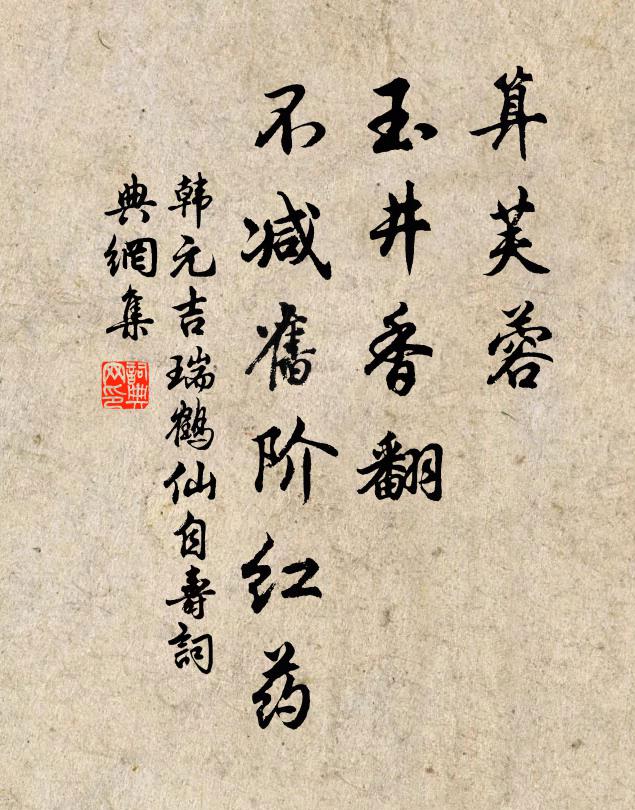 算芙蓉
玉井香翻
不减舊阶红药
韩元吉瑞鹤仙自壽詞
典網集
詞典
网印